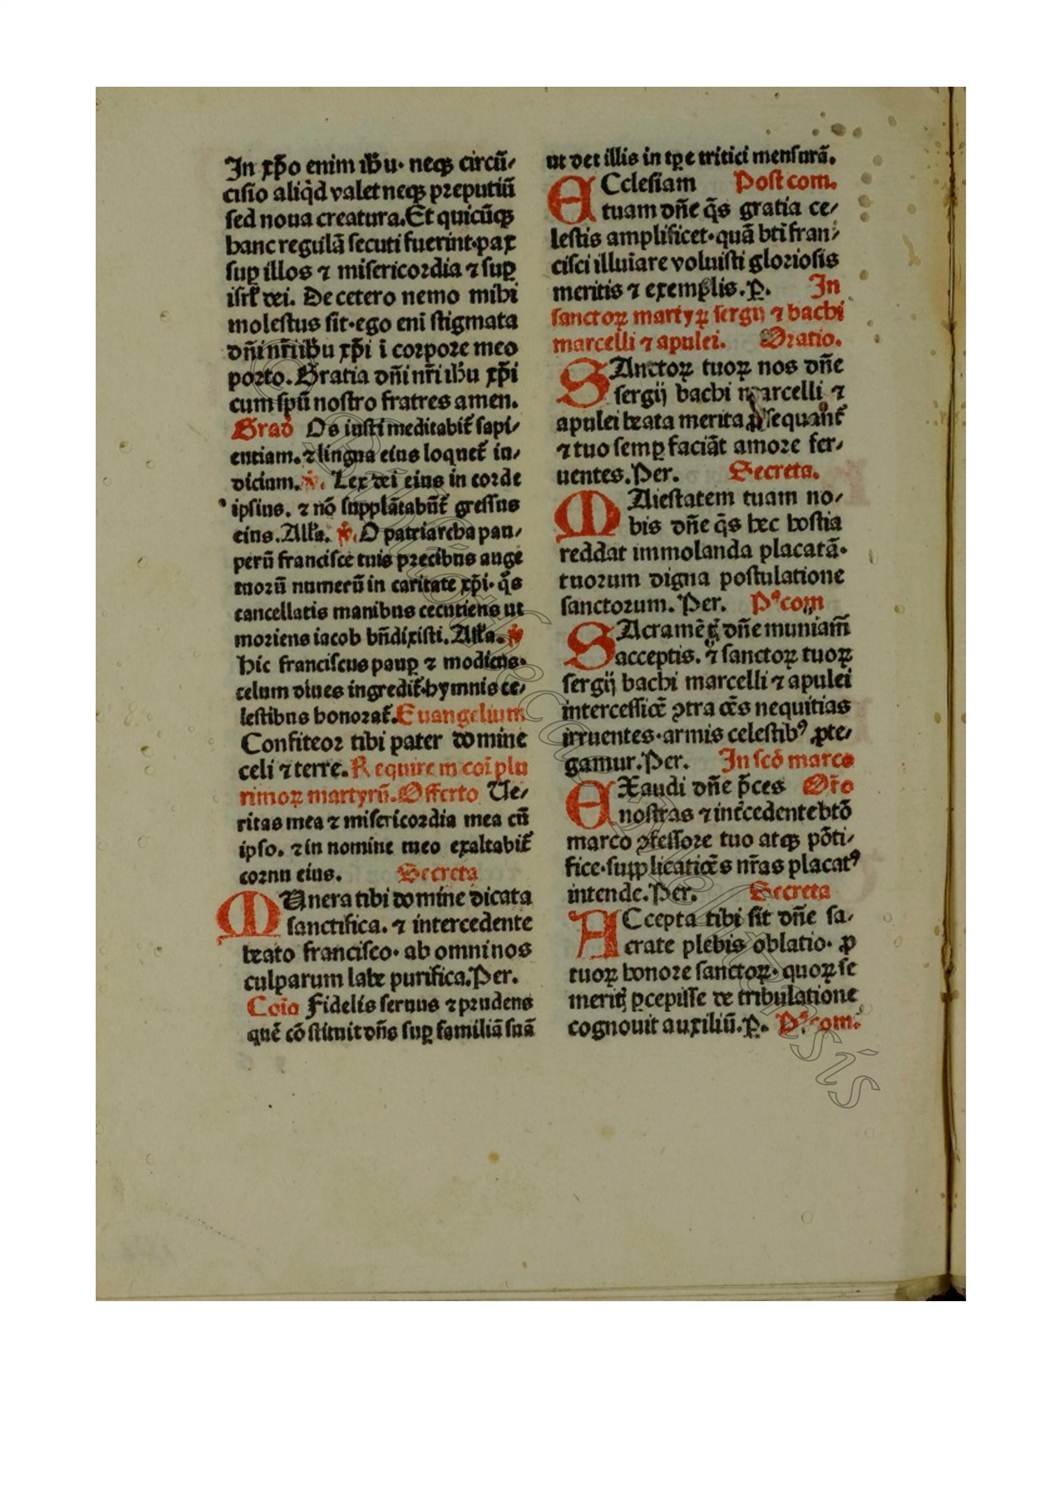 In xp̄o enim ih̄u· neqꝫ circū⸗
cisio aliq̇d valet neqꝫ preputiū
sed noua creatura. Et quicūqꝫ
hanc regulā secuti fuerint· pax
suꝑ illos ⁊ misericordia ⁊ suꝑ
isrł dei. De cetero nemo mihi
molestus sit· ego eni stigmata
dn̄i nr̄i ih̄u xp̄i ī corpore meo
porto. Gratia dn̄i nr̄i ih̄u xp̄i
cum spū nostro fratres amen.
Grad Os iusti meditabit᷑ sapi⸗
entiam. ⁊ lingua eius loquet᷑ iu⸗
dicium. ℣. Lex dei eius in corde
ipsius. ⁊ nō supplātabūt᷑ gressus
eius. Alła. ℣. O patriarcha pau⸗
perū francisce tuis precibus auge
tuorū numerū in caritate xp̄i· q̄s
cancellatis manibus cecutiens ut
moriens iacob bn̄dixisti. Alła. ℣
Hic franciscus pauꝑ ⁊ modicus·
celum diues ingredit᷑· hymnis ce⸗
lestibus honorat᷑. Euangelium
Confiteor tibi pater domine
celi ⁊ terre. Require in coī plu
rimoꝝ martyrū. Offerto Ue⸗
ritas mea ⁊ misericordia mea cū
ipso. ⁊ in nomine meo exaltabit᷑
cornu eius. Secreta
MUnera tibi domine dicata
sanctifica. ⁊ intercedente
beato francisco· ab omni nos
culparum labe purifica. Per.
Coīo Fidelis seruus ⁊ prudens
quē cōstituit dn̄s suꝑ familiā suā
ut det illis in tꝑe tritici mensurā.
ECclesiam Post com.
tuam dn̄e q̄s gratia ce⸗
lestis amplificet· quā bt̄i fran⸗
cisci illuīare voluisti gloriosis
meritis ⁊ exemplis. ꝑ. In
sanctoꝝ martyꝝ sergij ⁊ bachi
marcelli ⁊ apulei. Oratio.
SAnctoꝝ tuoꝝ nos dn̄e
sergij bachi marcelli ⁊
apulei beata merita ꝓsequant᷑
⁊ tuo semꝑ faciāt amore fer⸗
uentes. Per. Secreta.
MAiestatem tuam no⸗
bis dn̄e q̄s hec hostia
reddat immolanda placatā·
tuorum digna postulatione
sanctorum. Per. Pꝰ com̄
SAcramēt̄ dn̄e muniam̄
acceptis. ⁊ sanctoꝝ tuoꝝ
sergij bachi marcelli ⁊ apulei
intercessiōe ꝯtra oēs nequitias
irruentes· armis celestibꝰ ꝓte⸗
gamur. Per. In scō marco
EXaudi dn̄e p̄ces Or̄o
nostras ⁊ int̄cedente bt̄o
marco ꝯfessore tuo atqꝫ pōti⸗
fice· supplicatiōes nr̄as placatꝰ
intende. Per. Secreta
ACcepta tibi sit dn̄e sa⸗
crate plebis oblatio· ꝓ
tuoꝝ honore sanctoꝝ· quoꝝ se
meritꝭ ꝑcepisse de tribulatione
cognouit auxiliū. ꝑ. Pꝰ com.